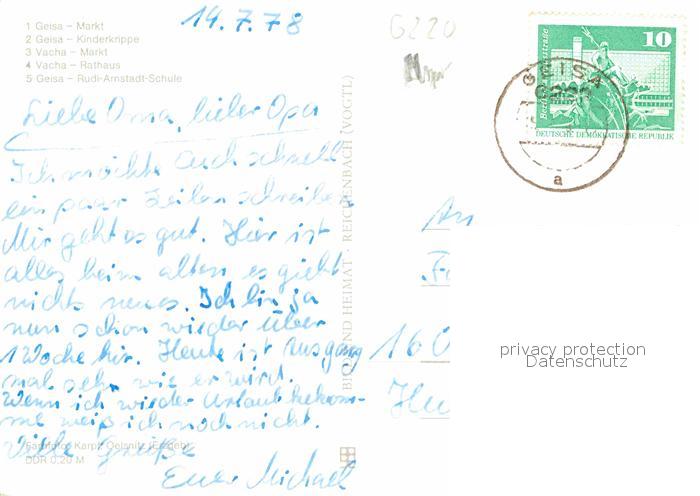 14.7.78
1 Geisa – Markt
2 Geisa – Kinderkrippe
3 Vacha – Markt
4 Vacha – Rathaus
5 Geisa – Rudi-Arnstadt-Schule
Liebe Oma, lieber Opa
Ich möchte Euch schnell
ein paar Zeilen schreiben
Mir geht es gut. Hier ist
alles beim alten es giebt
nichts neues. Ich bin ja
nun schon wieder über
1 Woche hir. Heute ist Ausgang
mal sehn wie er wird.
Wenn ich wieder Urlaub bekom-
me weiß ich noch nicht.
Viele Grüße
Euer Michael
DDR 0,20 M
BILD UND HEIMAT REICHENBACH (VOGTL)
6220
10
DEUTSCHE DEMOKRATISCHE REPUBLIK
GEISA
a
An
160
privacy protection
Datenschutz